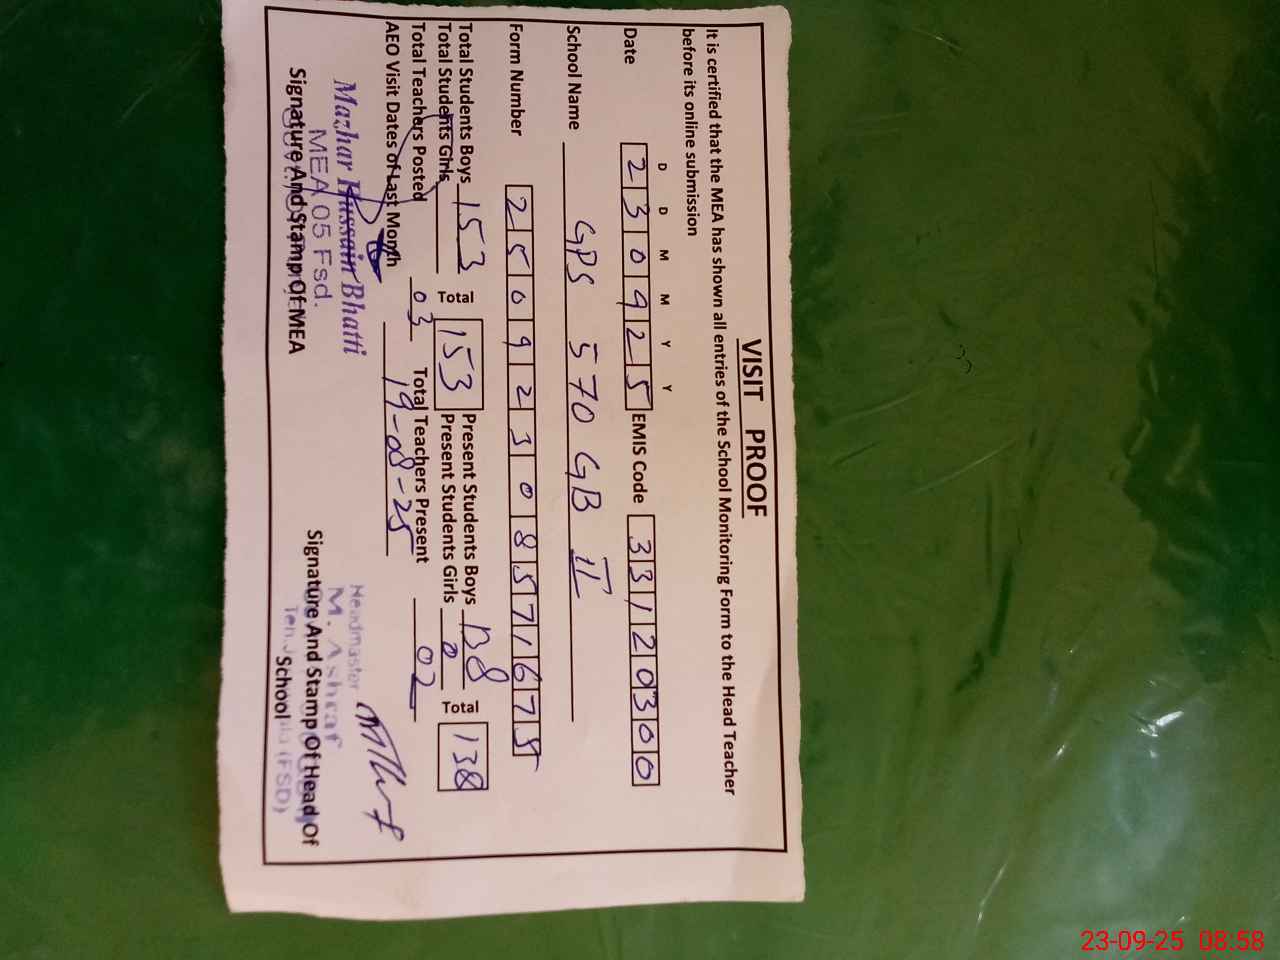 VISIT PROOF
It is certified that the MEA has shown all entries of the School Monitoring Form to the Head Teacher
before its online submission
D D M M Y Y
Date 230925 EMIS Code 33120300
School Name GPS 570 GB II
Form Number 25092308571675
Total Students Boys 153 Total 153 Present Students Boys 138 Total 138
Total Students Girls Present Students Girls 0
Total Teachers Posted 03 Total Teachers Present 02
AEO Visit Dates of Last Month 19-08-25
Mazhar Hussain Bhatti
MEA 05 Fsd.
Signature And Stamp Of MEA
Headmaster
M. Ashraf
Signature And Stamp Of Head Of
School
(FSD)
23-09-25 08:58